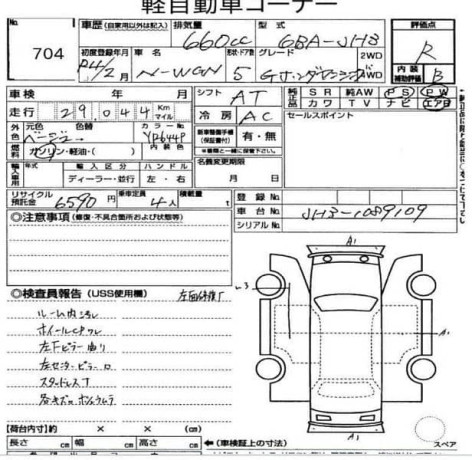 軽自動車コーナー
No. 704
車歴 (自家用以外は記入) 排気量 660cc 型式 6BA-JH3
初度登録年月 R4/2月 車名 N-WGN 形状・ドア数 5 グレード G ホンダセンシング 2WD 4WD
評価点 R
内装補助評価 B
車検 年 月 シフト AT
純 SR 純AW PS PW
革 カワ TV ナビ エアB
走行 29,044 Km マイル 冷房 AC
セールスポイント
外色 元色 ベージュ 色替 カラーNo. YR644P
新車整備手帳(保証書付) 有・無
燃料 ガソリン・軽油・( ) 内装色
名義変更期限
月 日
輸入車用 年式 輸入区分 ハンドル
ディーラー・並行 左・右
リサイクル預託金 6590円 乗車定員 4人 積載量 t
登録 No.
車台 No. JH3-1089109
シリアル No.
◎注意事項 (修復・不具合箇所および状態等)
◎検査員報告 (USS使用欄)
ルーム内汚れ
左下ピラー曲り
左センターピラー
スタッドレス
A1
A1
A1
スペア
【荷台内寸】約 × ×
長さ cm 幅 cm 高さ cm ←(車検証上の寸法)